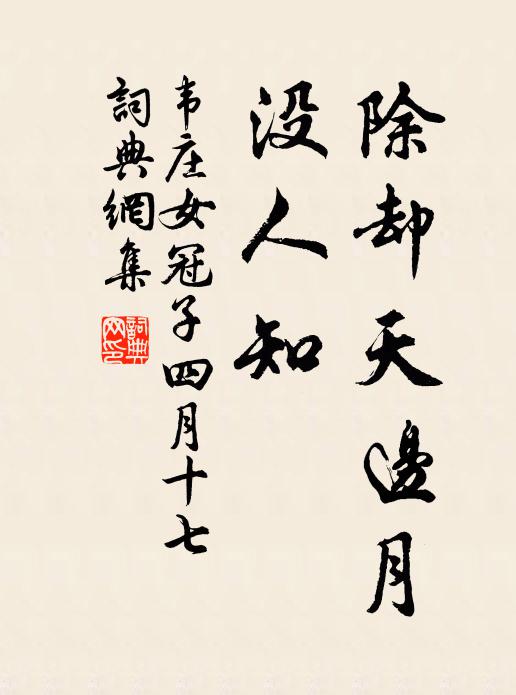 除却天邊月
没人知
韦庄女冠子四月十七
詞典網集
詞典网印